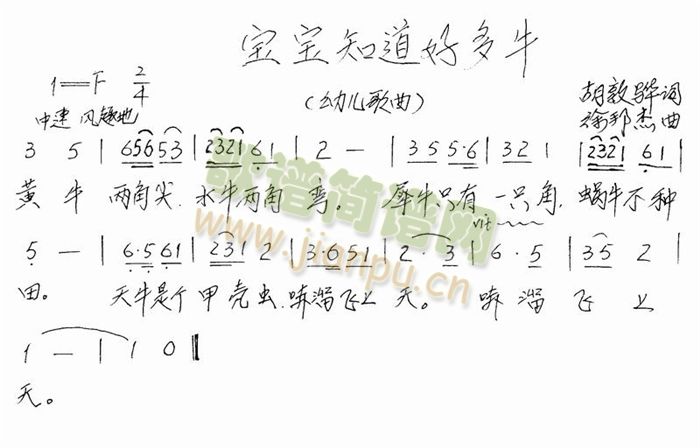 宝宝知道好多牛
1=F 2/4
(幼儿歌曲)
胡敦骅词
中速 风趣地
徐邦杰曲
3 5 | 6 5 6 5 3 | 2 3 2 1 6 1 | 2 — | 3 5 5·6 | 3 2 1 | 2 3 2 1 6 1 |
黄 牛 两角尖. 水牛两角 弯。 犀牛只有 一只角, 蜗牛不种
rit
5 — | 6·5 6 1 | 2 3 1 2 | 3·6 5 1 | 2·3 | 6·5 | 3 5 2 |
田。 天牛是个 甲壳虫, 哧溜飞上 天。 哧 溜 飞 上
1 — | 1 0 ‖
天。
歌谱简谱网
www.jianpu.cn